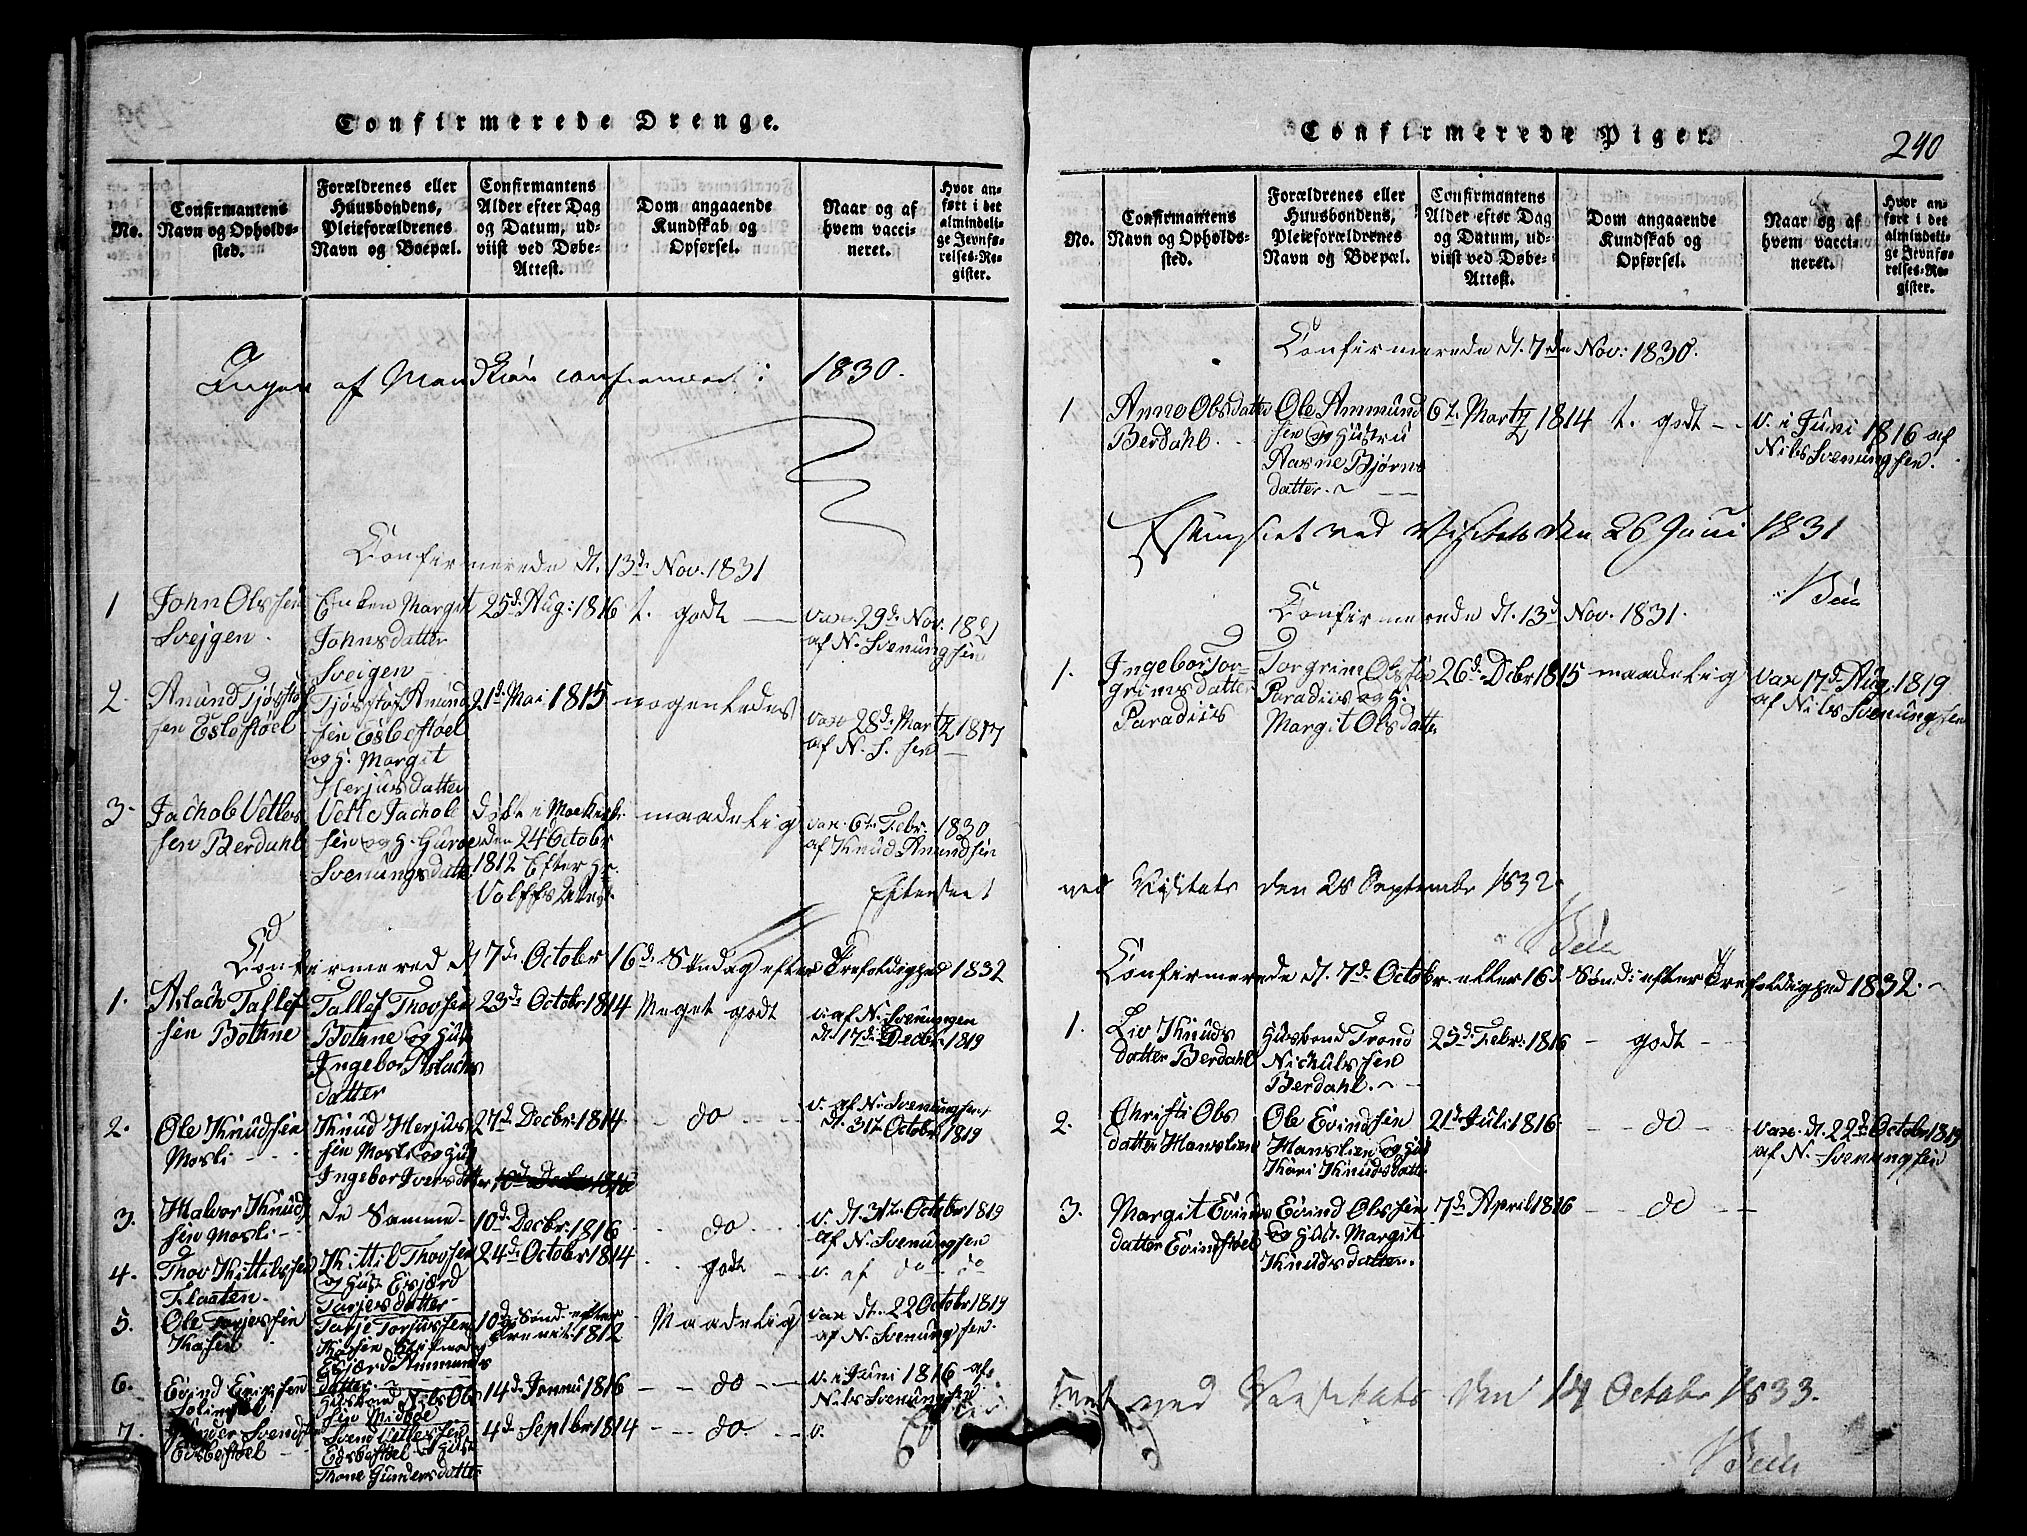 Confirmerede Drenge.
No.
Confirmantens
Navn og Opholds-
sted.
Forældrenes eller
Huusbondens,
Pleieforældrenes
Navn og Boepæl.
Confirmantens
Alder efter Dag
og Datum, ud-
viist ved Døbe-
Attest.
Dom angaaende
Kundskab og
Opførsel.
Naar og af
hvem vacci-
neret.
Hvor an-
ført i det
almindeli-
ge Jevnfø-
relses-Re-
gister.
Ingen af Mandkiøn confirmeret i 1830.
Confirmerede d. 13de Nov. 1831
1
John Olssen
Svejgen.
Enken Margit
Johnsdatter
Sveigen
25d Aug: 1816
t. godt
vax. 29de Nov. 18
af N. Svenungsen
2.
Anund Tjøstof
sen Eslestøel
Tjøstof Anund
sen Eslestøel
og H. Margit
Herjusdatter
21d Mai 1815
nogenledes
vax 28d Martz 1817
af N. S. sen
3.
Jachob Vetles
sen Berdahl
Vetle Jachob
sen og H. Guroe
Svenungsdatter
døbt i Moe Kirke
den 24 Octobr
1812 Efter Hr.
Volffs Attest.
maadelig
vax. 6te Febr: 1830
af Knud Anundsen
Efterseet
Confirmered d. 7de Octobr 16d. Søndag efter Trefoldighed 1832
1.
Aslach Tallef
sen Bothne
Tallef Thovsen
Bothne og Hust
Ingebor Aslachs
datter
23d Octobr 1814
Meget godt
v. af N. Svenungen
d. 17de Decbr. 1819
2.
Ole Knudsen
Mosli
Knud Herjus
sen Mosli og Hust
Ingebor Iversdatter
27d Decbr: 1814
do
v. af N. Svenungsen
d. 31te Octobr 1819
3.
Halvor Knud
sen Mosli
de Samme
10d Decbr: 1816
do.
v. d. 31te Octobr 1819
af N. Svenungsen
4.
Thov Kittilssen
Flaaten
Kittil Thovsen
og Hust Esjærd
Tarjersdatter
24d Octobr 1814
godt
v. af do do
5.
Ole Tarjessen
Kasin
Tarje Torjussen
Kasin
Esjærd Ammunds
datter
10d Sønd. efter
Trenit: 1812
Maadelig
vax d. 22 Octobr 1819
af N. Svenungsen.
6.
Evind Evinsen
Husbond Nils Ols
sen Midbøe
14d Janu 1816
do
v. i Juni 1816 af
Nils Svenungsen
7.
Gunder Svends
Edsbestøel
Svend Vetlessen
Edsbestøel og Hust
Thone Gundersdatter
4d Septbr 1814
do.
v.
Confirmerede Piger.
240
No.
Confirmantens
Navn og Opholds-
sted.
Forældrenes eller
Huusbondens,
Pleieforældrenes
Navn og Boepæl.
Confirmantens
Alder efter Dag
og Datum, ud-
viist ved Døbe-
Attest.
Dom angaaende
Kundskab og
Opførsel.
Naar og af
hvem vacci-
neret.
Hvor an-
ført i det
almindeli-
ge Jevnfø-
relses-Re-
gister.
Confirmerede d. 7de Nov: 1830.
1
Anne Olsdatter
Berdahl.
Ole Ammund
sen og Hustru
Aasne Bjørns
datter.
6te Martz 1814
t. godt
v. i Juni 1816 af
Nils Svenungsen.
Efterseet ved Visitats den 26 Juni 1831
Confirmerede d. 13d Nov. 1831.
1.
Ingebor Tor-
grimsdatter
Paradiis
Torgrim Olssen
Paradiis og H.
Margit Olsdatter
26d Debr 1815
maadelig
vax 17d Aug. 1819
af Nils Svenungsen
ved Visitats den 28 September 1832.
Confirmerede d. 7d. Octobr. eller 16d Sønd: efter Trefoldighed 1832.
1.
Liv Knuds
datter Berdahl
Husbond Trond
Nichulssen
Berdahl.
23d Febr: 1816
godt
2.
Christi Ols
datter Hamslien
Ole Evindsen
Hamslien og Hust
Kari Knudsdatter
21d Juli 1816
do
vax. d. 22de Octobr 1819
af N. Svenungsen
3.
Margit Evinds
datter Evindstøel
Evind Olssen
og Hust. Margit
Knudsdatter.
7d April 1816
do
ved Visitats den 14 Octobr 1833.